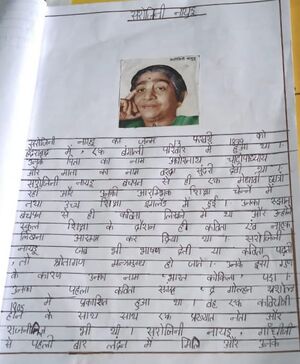 सरोजिनी नायडू
सरोजिनी नायडू
सरोजिनी नायडू का जन्म फरवरी 1879 को
हैदराबाद में एक बंगाली परिवार में हुआ था।
उनके पिता का नाम अघोरनाथ चट्टोपाध्याय
और माता का नाम वरदा सुंदरी देवी था
सरोजिनी नायडू बचपन से ही एक मेधावी छात्रा
रही और आरम्भिक शिक्षा चेन्नै में
तथा उच्च शिक्षा इंग्लैंड में हुई। उनका रुझान
बचपन से ही कविता लिखने में था और उन्होंने
स्कूल शिक्षा के दौरान ही कविता एवं नाटक
लिखना आरम्भ कर दिया था। सरोजिनी
नायडू जब भी भाषण देती या कविता पढ़ती
तो श्रोतागण मन्त्रमुग्ध हो जाते। उनके इसी गुण
के कारण उनका नाम भारत कोकिला पड़ा।
उनका पहला कविता संग्रह द गोल्डन थ्रशोल्ड
में प्रकाशित हुआ था। वह एक कवियित्री
होने के साथ साथ एक प्रख्यात नेता और
राजनीतिज्ञ भी थी। सरोजिनी नायडू, गाँधीजी
से पहली बार लंदन में मिली और उनके